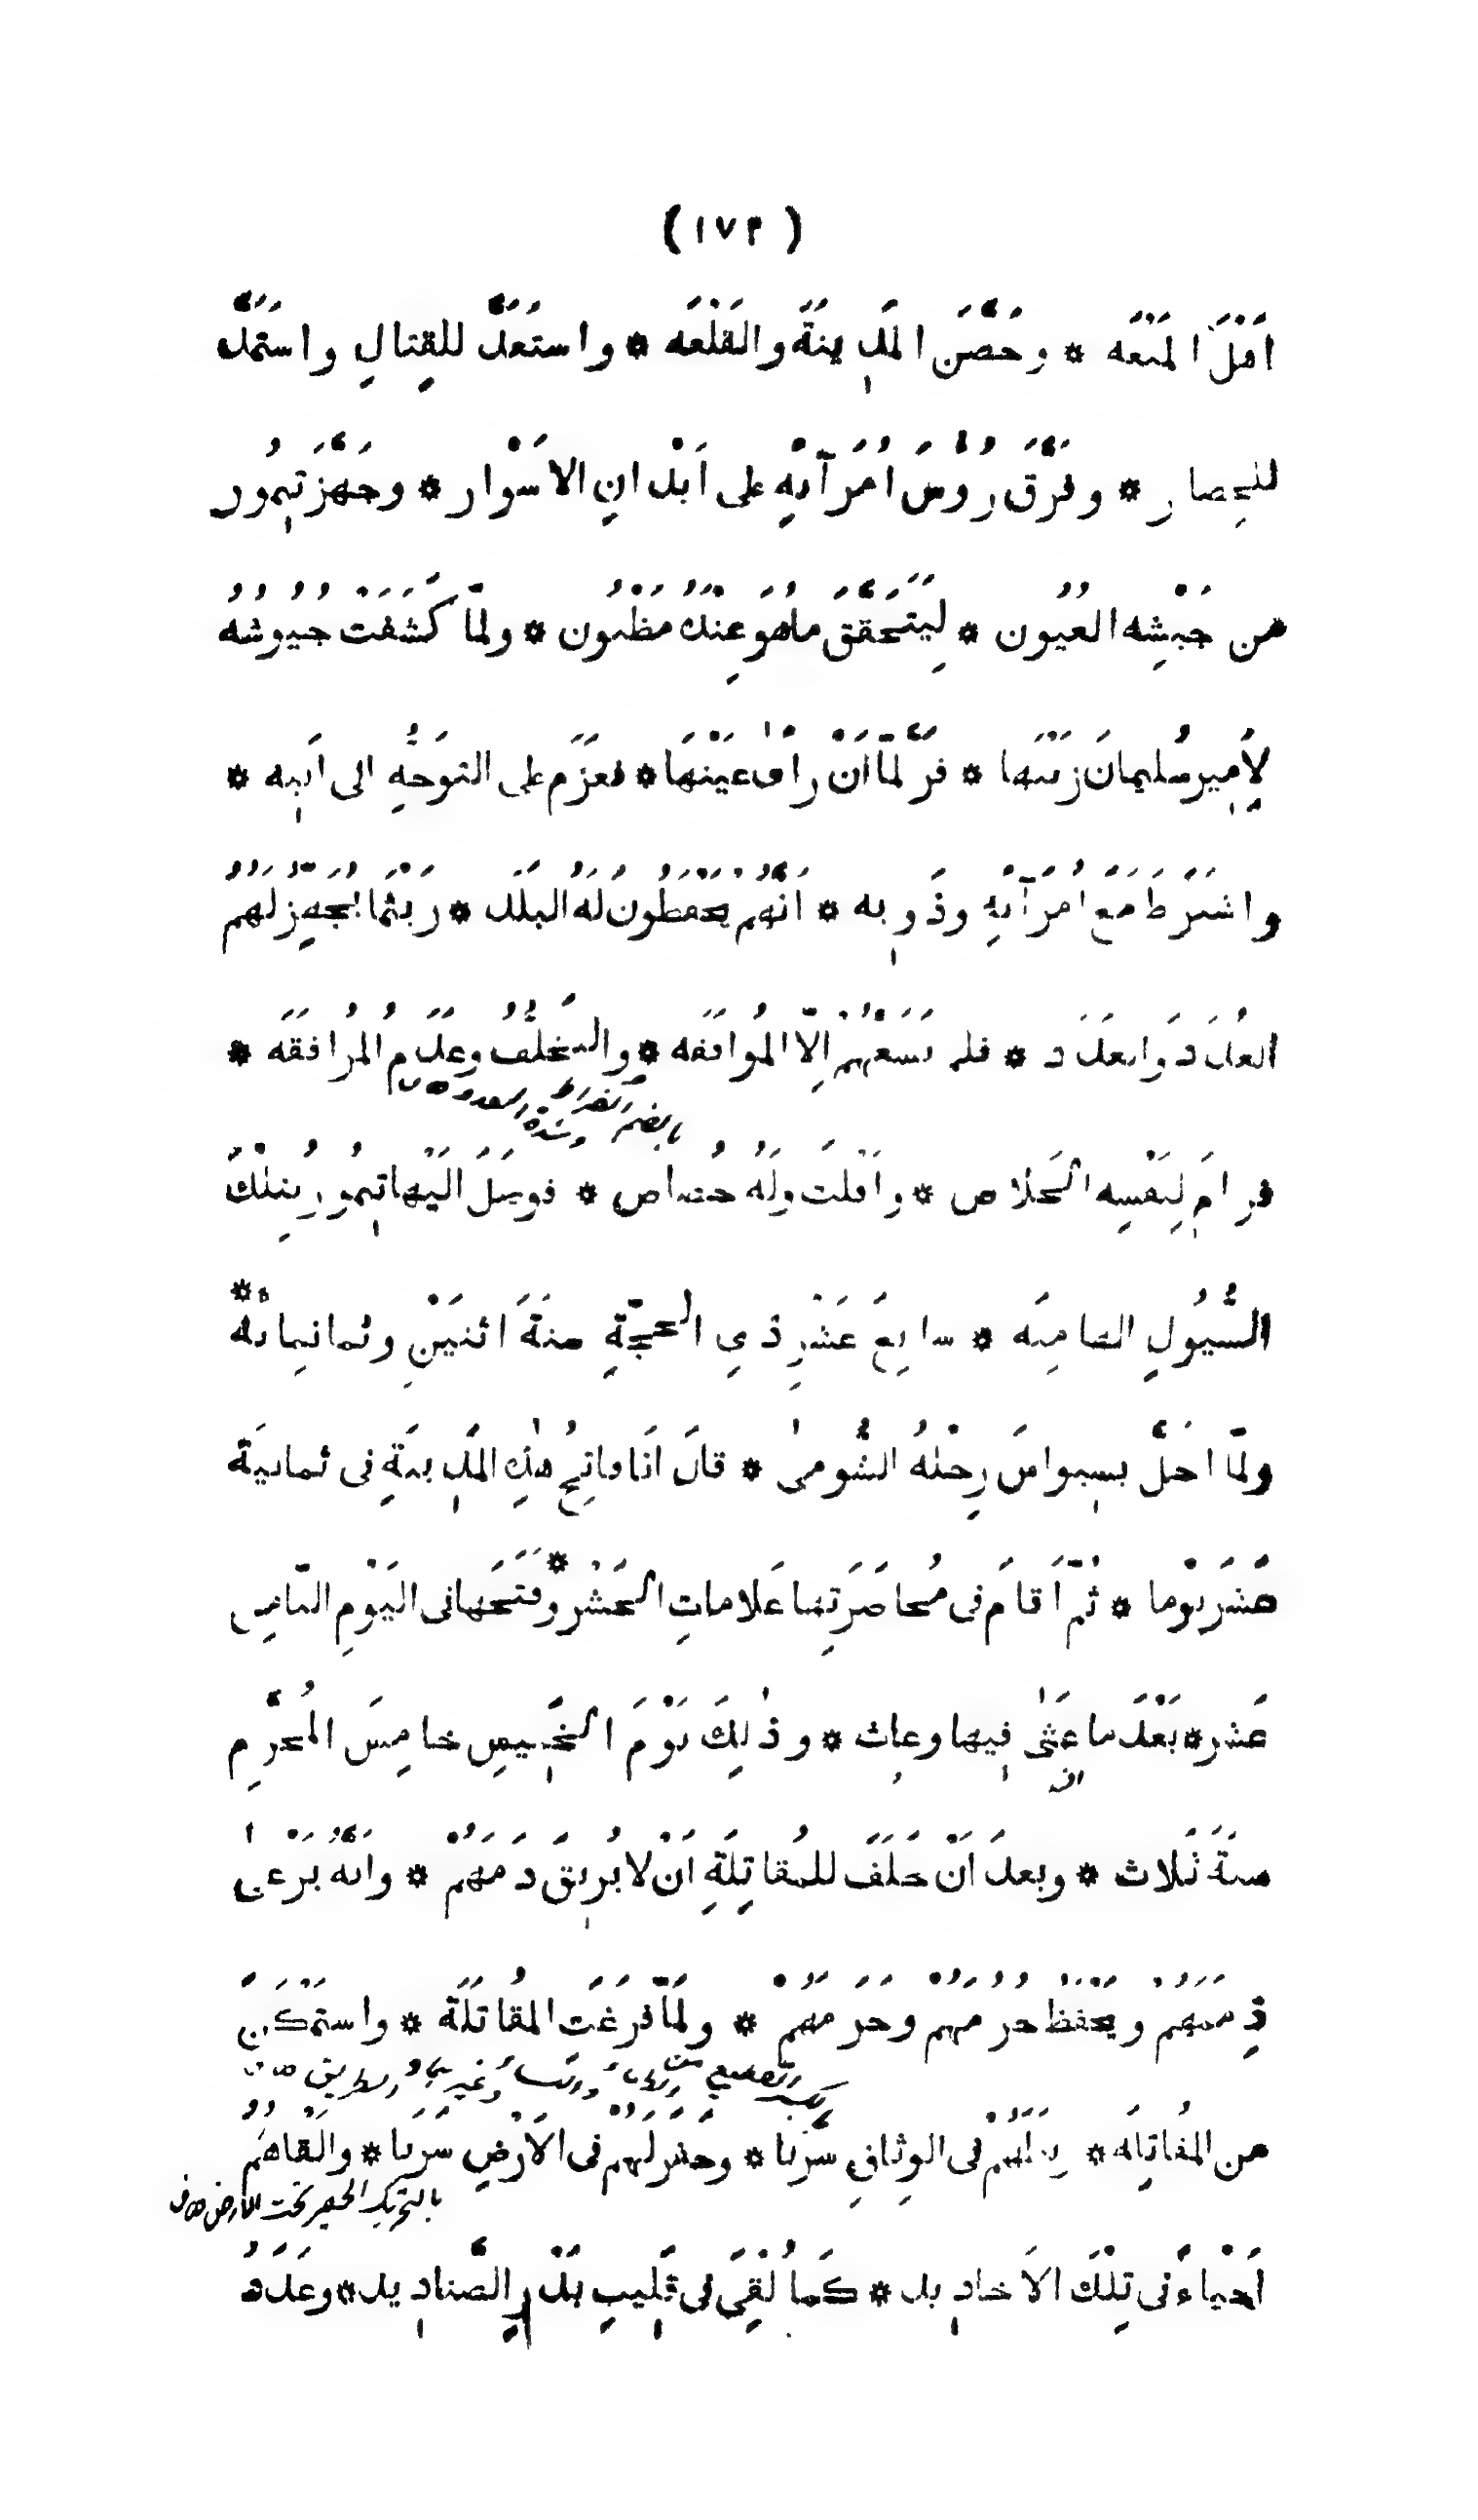 (١٧٣)
اَهْلَ المَنَعَه * وحَصَّنَ المَدِينَةَ والقَلْعَه * واستَعَدَّ للقِتالِ واستَمَدَّ
للحِصارِ * وفَرَّقَ رُؤُسَ اُمَرَآئِهِ على اَبْدانِ الاَسْوار * وجَهَّزَ تيمُور
من جَيْشِه العُيُون * لِيَتَحَقَّقَ ماهُوَ عِنْدَهُ مَظْنُون * ولمّا كَشَفَتْ جيُوشُه
لِاَمِير سُليمانَ زَيْنَها * فرَّ لمّا اَنْ راٰى عَيْنَها * فعَزَم على التوَجُّهِ الى اَبِيه *
واشتَرَطَ مَعَ اُمَرَآئِهِ وذَوِيه * اَنَّهُم يَحْفَظُونَ لَهُ البَلَد * رَيْثَما يُجَهِّزُ لَهُمُ
العُدَدَ وَالعَدَد * فلم تَسَعْهُمْ اِلّا المُوافَقَه * والتخَلُّفُ وعَدَمُ المُرافَقَه *
فرامَ لِنَفْسِه الخَلاص * واَفْلَتَ ولَهُ حُصاص * فوصَلَ اليْها تيمُور بتِلْكَ
السُّيُولِ الطامِيَه * سابِعَ عَشَرِ ذي الحجّةِ سنةَ اثنَيْنِ وثمانمائة *
ولمّا احَلَّ بسِيواسَ رِجْلَهُ الشُّومىٰ * قالَ اَنا فاتِحُ هٰذِهِ المَدِينَةِ فى ثمانيَةَ
عَشَرَ يَوْما * ثُمّ اَقامَ فى مُحاصَرَتِها عَلاماتِ الحَشْر * وفَتَحَها فى اليَوْمِ الثّامِن
عَشَر * بَعْدَ ما عَثٰى فِيها وعاث * وذٰلِكَ يَوْمَ الخَمِيسِ خامِسَ المُحَرَّمِ
سنةَ ثَلاث * وبعدَ اَنْ حَلَفَ للمُقاتِلَةِ اَنْ لا يُرِيقَ دَمَهُمْ * وانّهُ يَرْعىٰ
ذِمَمَهُمْ ويَحْفَظُ حُرُمَهُمْ وحَرَمَهُمْ * ولمّا فَرَغَتِ المُقاتَلَة * واستَمْكَنَ
من المُقاتِلَه * رَبَطَهُمْ فى الوِثاقِ سَرَبًا * وحَفَرَ لَهُمْ فى الاَرْضِ سَرَبا * واَلْقاهُمُ
بالتحريك الحفير تحت الارض
اَحْياءً فى تِلْكَ الاَخادِيد * كَما اُلْقِىَ فى قَلِيبِ بَدْرٍ الصَّنادِيد * وعَدَدُ